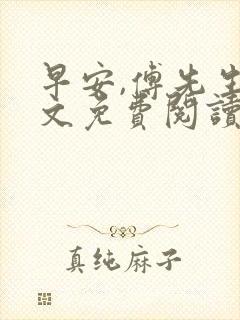 早安,傅先生
文免費閱讀
真纯麻子